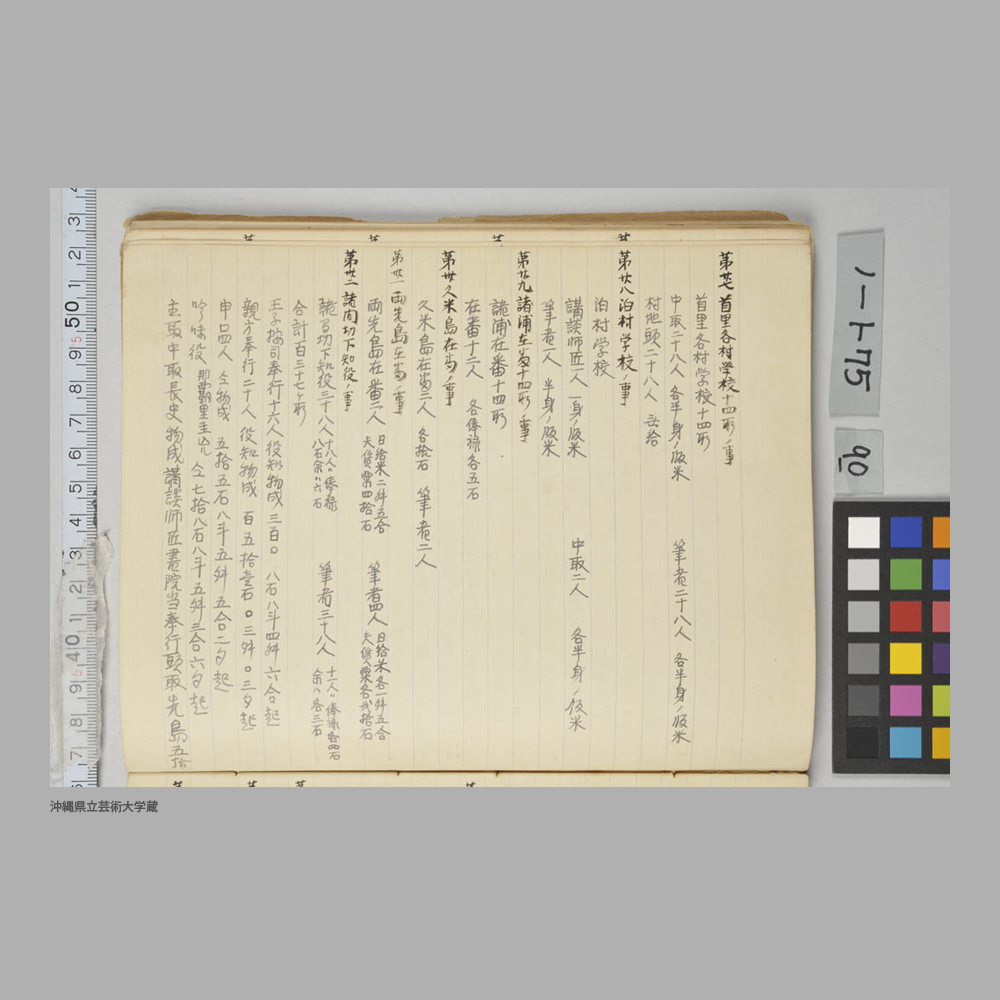 第廿七 首里各村学校十四所ノ事
首里各村学校十四所
中取二十八人 各半身ノ飯米 筆者二十八人 各半身ノ飯米
村地頭二十八人
第廿八 泊村学校ノ事
泊村学校
講談師匠一人 一身ノ飯米 中取二人 各半身ノ飯米
筆者一人 半身ノ飯米
第廿九 諸浦在番十四所ノ事
諸浦在番十四所
在番十二人 各俸禄各五石
第卅 久米島在番ノ事
久米島在番二人 各拾石 筆者二人
第卅一 両先島在番ノ事
両先島在番二人 日給米二舛五合 夫賃粟四拾石 筆者四人 日給米各一舛五合 夫賃粟各弐拾石
第卅二 諸間切下知役ノ事
諸間切下知役三十八人 十八人ハ俸禄八石余ハ六石 筆者三十八人 十一人ハ俸禄各四石 余ハ各三石
合計百三十七ヶ所
王子按司奉行十六人役知物成 三百〇 八石八斗四舛六合起
親方奉行二十人 役知物成 百五拾壱石〇三舛〇三夕起
申口四人 仝物成 五拾五石八斗五舛五合二夕起
吟味役 仝七拾八石八斗五舛三合六夕起
主取中取長史物成講談師匠書院当奉行頭取先島五拾
ノート75
90
沖縄県立芸術大学蔵